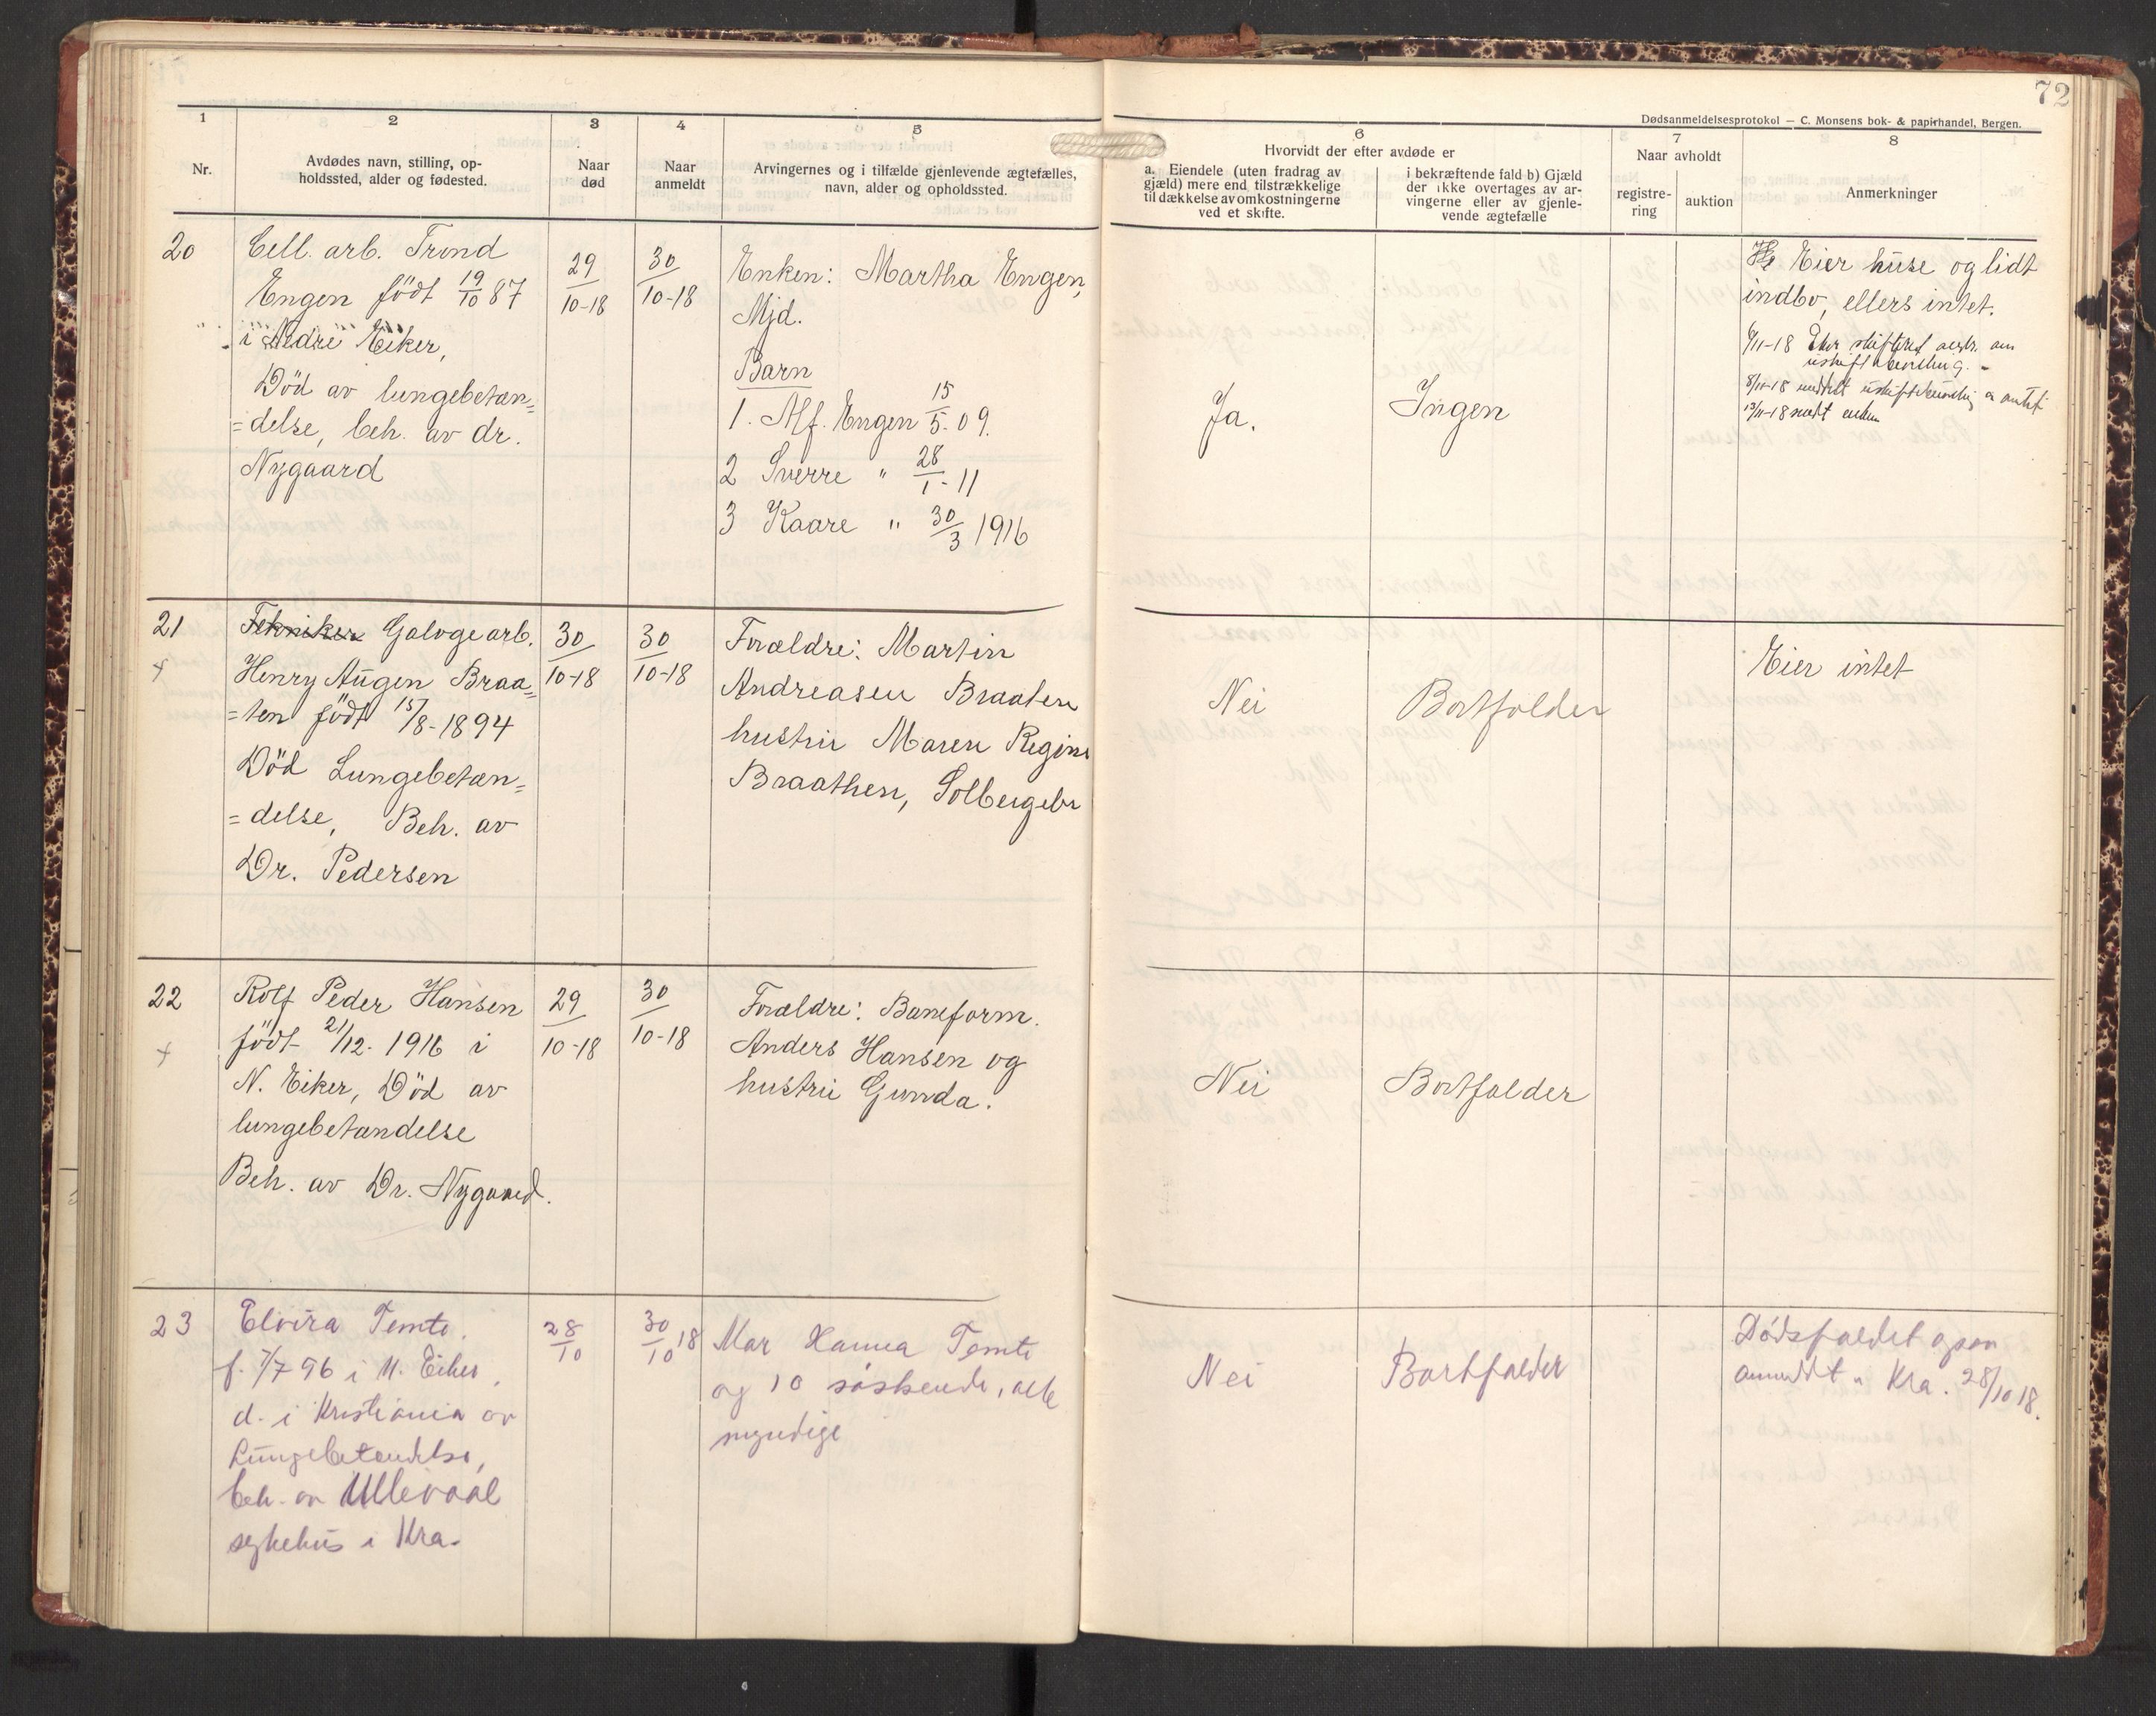 72
Dødsanmeldelsesprotokol — C. Monsens bok- & papirhandel, Bergen.
1
2
3
4
5
6
7
8
Nr.
Avdødes navn, stilling, op-
holdssted, alder og fødested.
Naar
død
Naar
anmeldt
Arvingernes og i tilfælde gjenlevende ægtefælles,
navn, alder og opholdssted.
Hvorvidt der efter avdøde er
a. Eiendele (uten fradrag av
gjæld) mere end tilstrækkelige
til dækkelse av omkostningerne
ved et skifte.
i bekræftende fald b) Gjæld
der ikke overtages av ar-
vingerne eller av gjenle-
vende ægtefælle
Naar avholdt
registre-
ring
auktion
Anmerkninger
20
Cell. arb. Trond
Engen födt 19/10 87
i Nedre Eiker,
Död av lungebetæn=
=delse, beh. av dr.
Nygaard
29
10-18
30
10-18
Enken: Martha Engen,
Mjd.
Barn
1. Alf. Engen 15/5-09.
2 Sverre " 28/1-11
3 Kaare " 30/3 1916
Ja.
Ingen
Eier huse og lidt
indbo, ellers intet.
8/11-18
13/11-18 sendt enken
21
Tekniker Galogearb.
Henry Augen Braa=
=ten födt 15/8-1894
Död Lungebetæn=
=delse, Beh. av
Dr. Pedersen
30
10-18
30
10-18
Forældre: Martin
Andreasen Braaten
hustru Maren Regine
Braathen, Solbergelv
Nei
Bortfalder
Eier intet
22
Rolf Peder Hansen
födt 21/12-1916 i
N. Eiker, Död av
lungebetændelse
Beh. av Dr. Nygaard.
29
10-18
30
10-18
Forældre: Baneform.
Anders Hansen og
hustru Gunda.
Nei
Bortfalder
23
Elvira Temte.
f. 7/7 96 i N. Eiker,
d. i Kristiania av
Lungebetændelse,
beh. av Ullevaal
sykehus i Kra.
28
10
30
10 18
Mor Hanna Temte
og 10 søskende, alle
myndige
Nei
Bortfalder
Dødsfaldet ogsaa
anmeldt i Kra. 28/10 18.